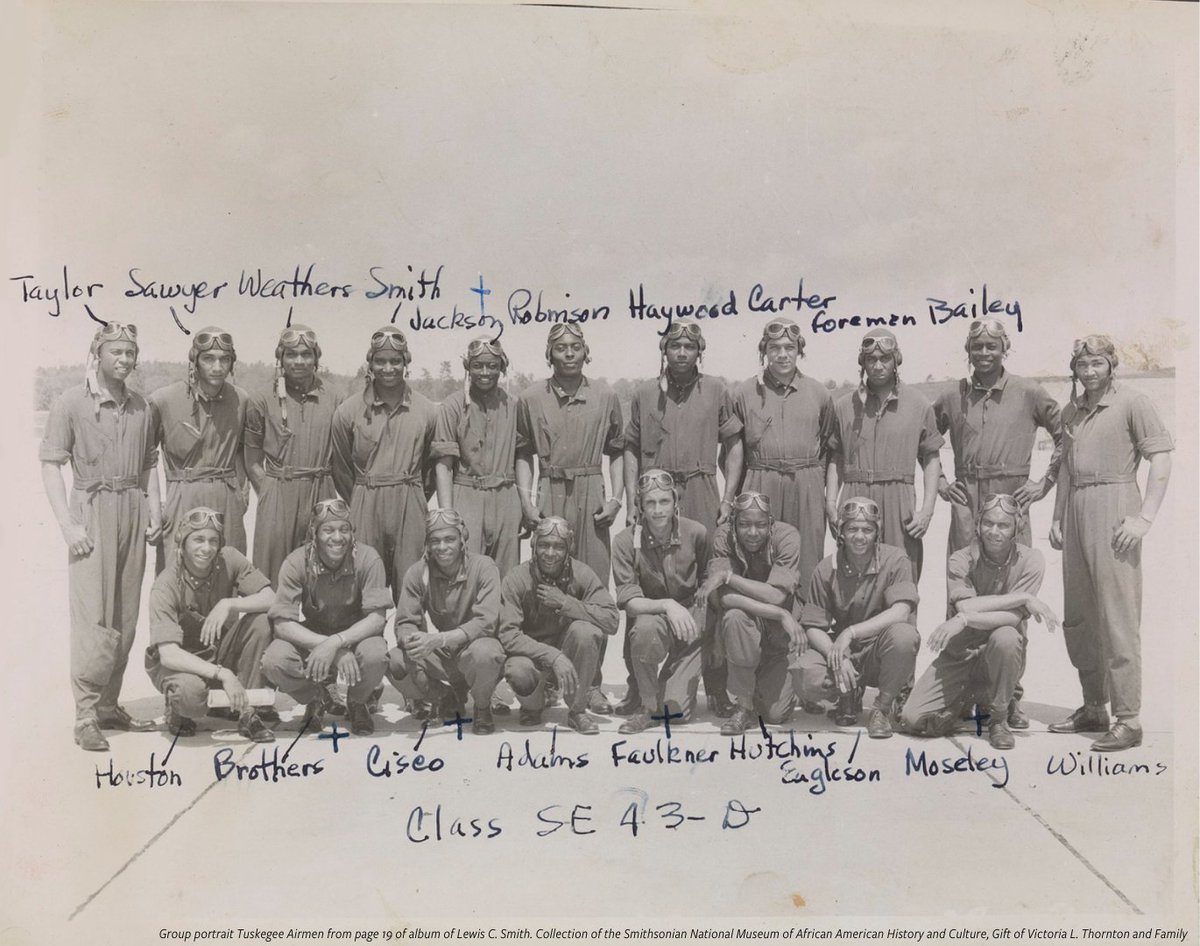 Taylor Sawyer Weathers Smith Jackson Robinson Haywood Carter Foreman Bailey
Houston Brothers Cisco Adams Faulkner Hutchins Eagleson Moseley Williams
Class SE 43-D
Group portrait Tuskegee Airmen from page 19 of album of Lewis C. Smith. Collection of the Smithsonian National Museum of African American History and Culture, Gift of Victoria L. Thornton and Family